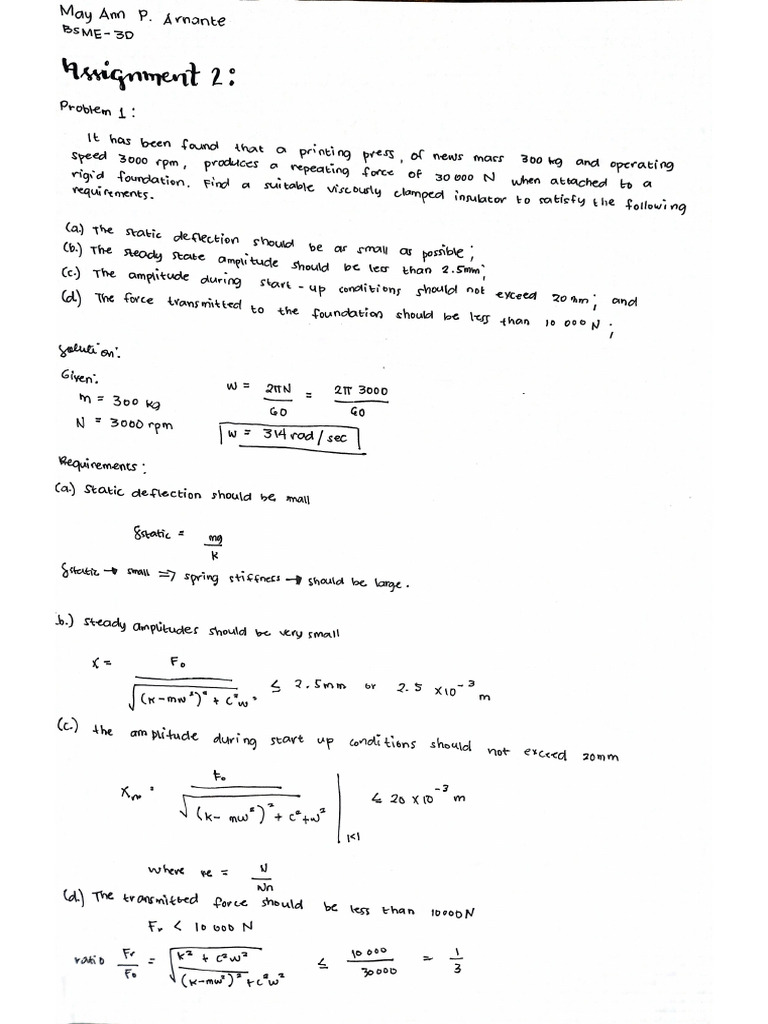 May Ann P. Arnante
BSME-3D
Assignment 2:
Problem 1:
It has been found that a printing press, of news mass 300 kg and operating
speed 3000 rpm, produces a repeating force of 30 000 N when attached to a
rigid foundation. Find a suitable viscously clamped insulator to satisfy the following
requirements.
(a.) The static deflection should be as small as possible;
(b.) The steady state amplitude should be less than 2.5mm;
(c.) The amplitude during start-up conditions should not exceed 20 mm; and
(d.) The force transmitted to the foundation should be less than 10 000 N;
Solution:
Given:
m = 300 kg
N = 3000 rpm
w = 2πN/60 = 2π 3000/60
w = 314 rad/sec
Requirements:
(a.) Static deflection should be small
δstatic = mg/k
δstatic → small ⇒ spring stiffness → should be large.
b.) Steady amplitudes should be very small
x = F₀/√(k-mw²)² + c²w² ≤ 2.5mm or 2.5 x10⁻³ m
(c.) the amplitude during start up conditions should not exceed 20mm
F₀/√(k-mw²)² + c²+w² | ≤ 20 x 10⁻³ m
where re = N/Nn
(d.) The transmitted force should be less than 10000N
Fr < 10 000 N
ratio Fr/F₀ = √k² + c²w²/(k-mw²)² + c²w² ≤ 10 000/30000 = 1/3